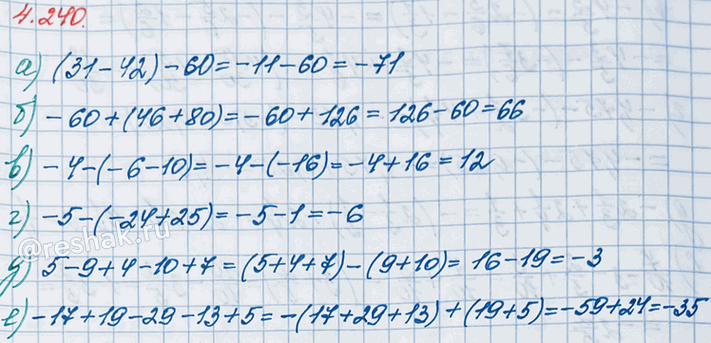 4.240.
а) (31-42)-60=-11-60=-71
б) -60+(46+80)=-60+126=126-60=66
в) -4-(-6-10)=-4-(-16)=-4+16=12
г) -5-(-24+25)=-5-1=-6
@reshak.ru
д) 5-9+4-10+7=(5+4+7)-(9+10)=16-19=-3
е) -17+19-29-13+5=-(17+29+13)+(19+5)=-59+24=-35